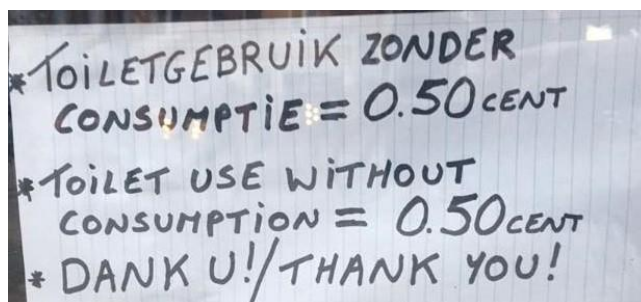 * TOiLETGEBRUiK ZONDER
CONSUMPTiE = 0.50 CENT
* TOiLET USE WiTHOUT
CONSUMPTiON = 0.50 CENT
* DANK U!/THANK YOU!